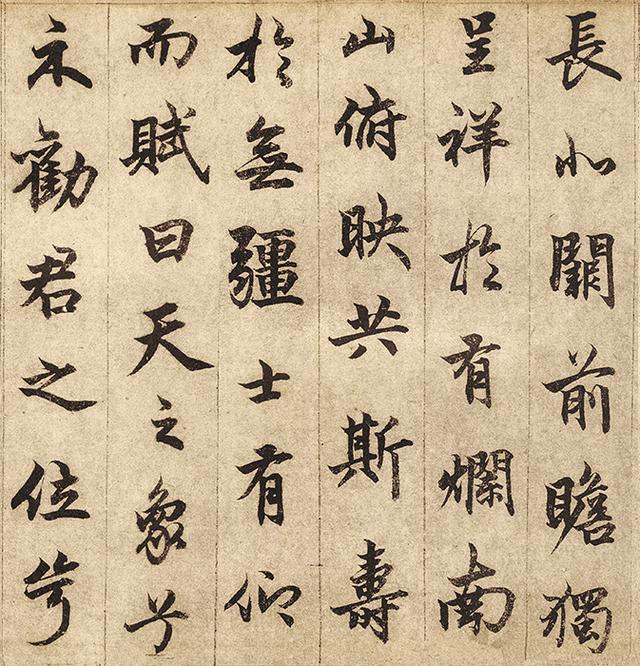 長北闕前瞻獨
呈祥於有爛南
山俯映共斯壽
於無疆士有仰
而賦曰天之象兮
示勸君之位兮